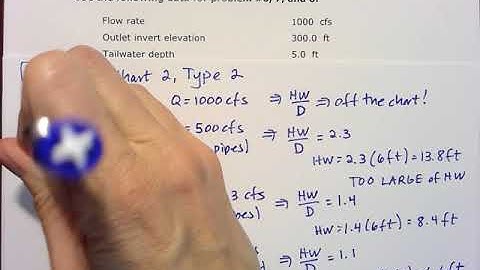 Flow rate 1000 cfs
Outlet invert elevation 300.0 ft
Tailwater depth 5.0 ft
Chart 2, Type 2
Q = 1000 cfs ⇒ HW/D ⇒ off the chart!
= 500 cfs ⇒ HW/D = 2.3
pipes) HW = 2.3 (6ft) = 13.8 ft
TOO LARGE of HW
3 cfs ⇒ HW/D = 1.4
pipes) HW = 1.4 (6ft) = 8.4 ft
⇒ HW/D = 1.1